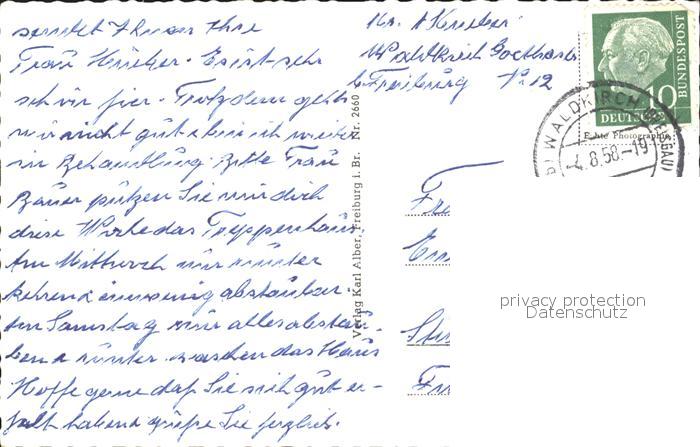 sendet Ihnen Ihre
Frau Es ist sehr
schön hier. Trotzdem geht's
mir nicht gut & bin ich weiter
in Behandlung. Bitte Frau
Bauer putzen Sie mir doch
diese Woche das Treppenhaus.
Am Mittwoch nur runter
kehren & ein wenig abstauben.
Am Samstag nur alles abstau-
ben & runter waschen das Haus
Hoffe gerne daß Sie sich gut er-
holt haben & grüße Sie herzlich.
Verlag Karl Alber, Freiburg i. Br. Nr. 2660
Waldkirch
b. Freiburg No. 12
10
DEUTSCHE
BUNDESPOST
WALDKIRCH (BREISGAU)
-4.8.58.-19
Echte Photographie
Fr
privacy protection
Datenschutz